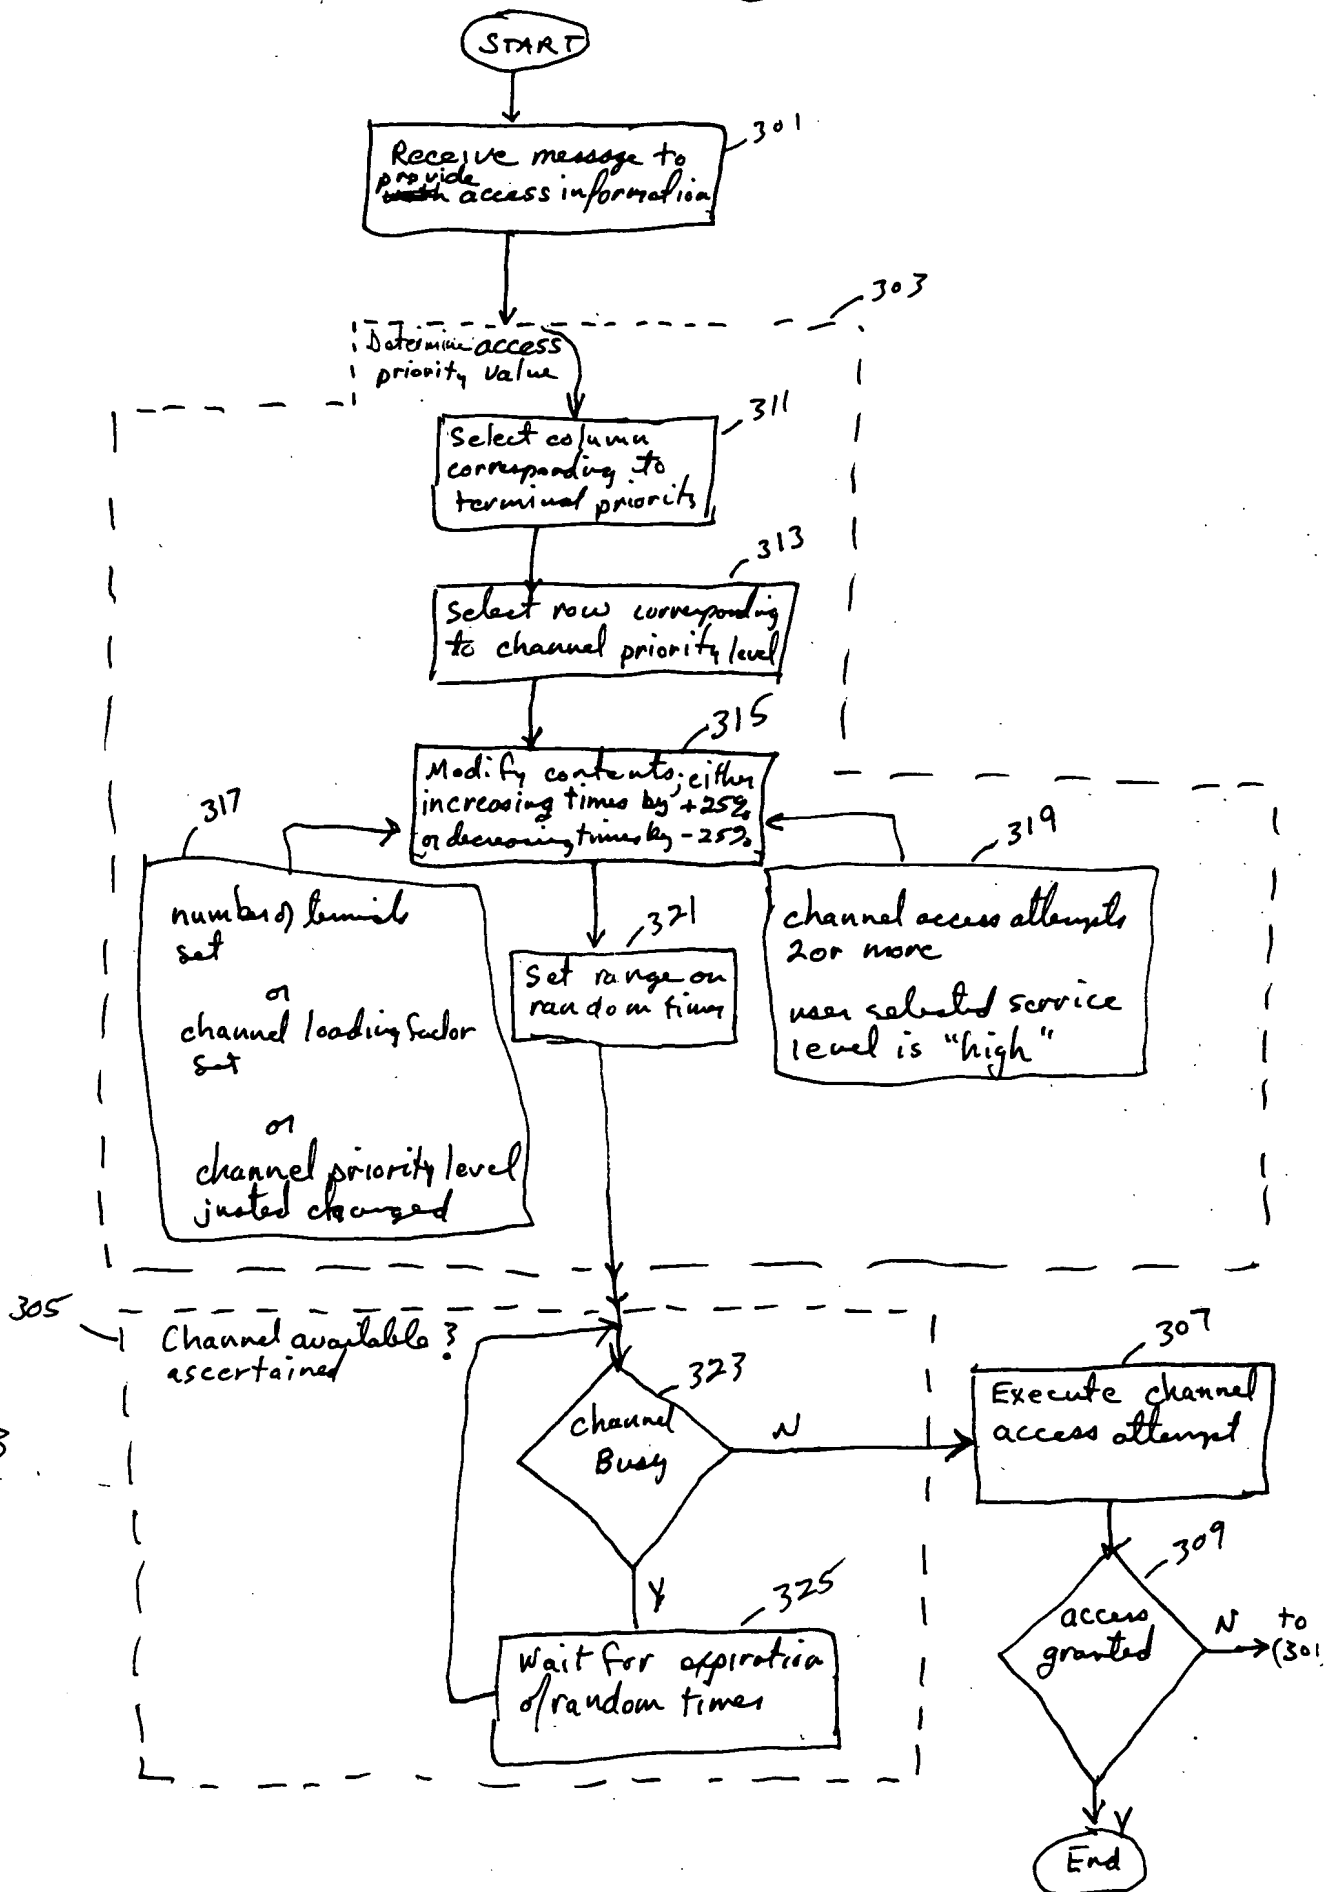 START
301
Receive message to
provide
access information
303
Determine access
priority value
311
Select column
corresponding to
terminal priority
313
Select row corresponding
to channel priority level
315
Modify contents; either
increasing times by +25%
or decreasing times by -25%
317
number of terminals
set
or
channel loading factor
set
or
channel priority level
justed changed
319
channel access attempts
2 or more
user selected service
level is "high"
321
Set range on
random timer
305
Channel available ?
ascertained
323
channel
Busy
N
Y
325
Wait for expiration
of random times
307
Execute channel
access attempt
309
access
granted
N
to
(301)
Y
End
3